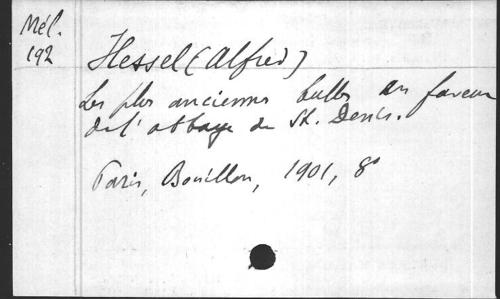 Mél.
192
Hessel (Alfred)
Les plus anciennes bulles en faveur
de l'abbaye de St. Denis.
Paris, Bouillon, 1901, 8°